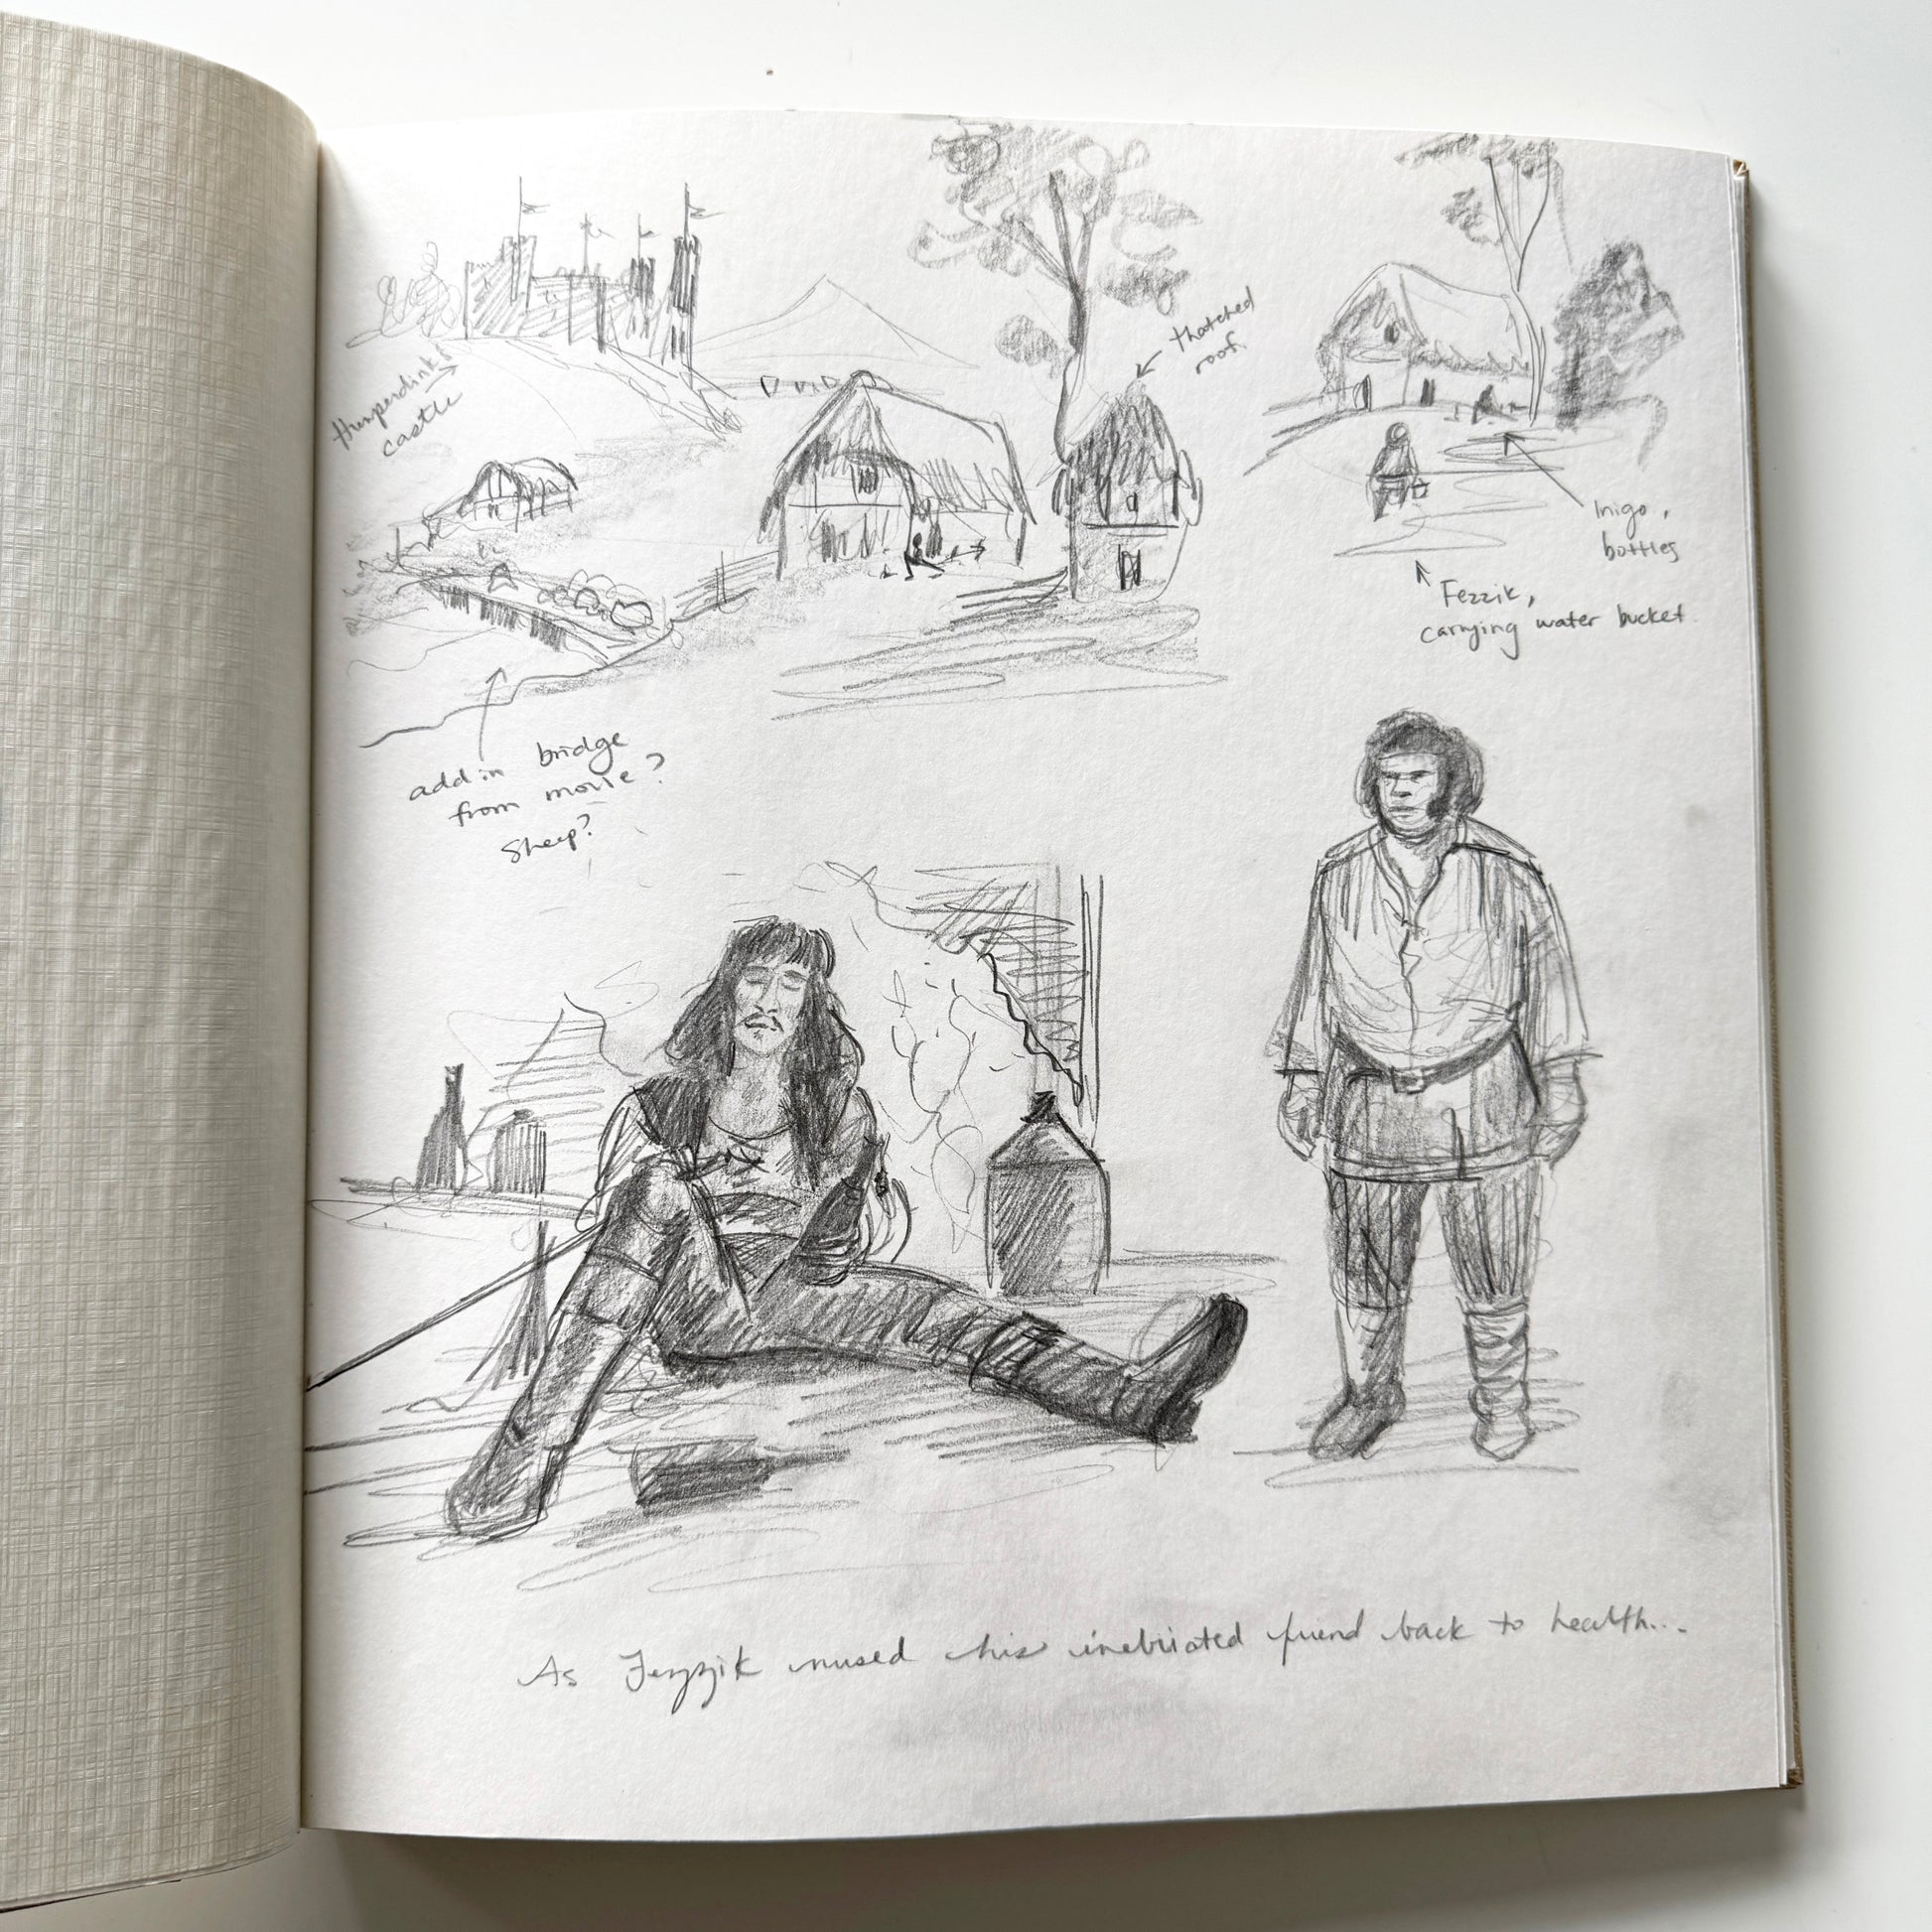 Humperdink's
castle
thatched
roof.
Inigo,
bottles
Fezzik,
carrying water bucket.
add in bridge
from movie?
Sheep?
As Fezzik nursed his inebriated friend back to health...